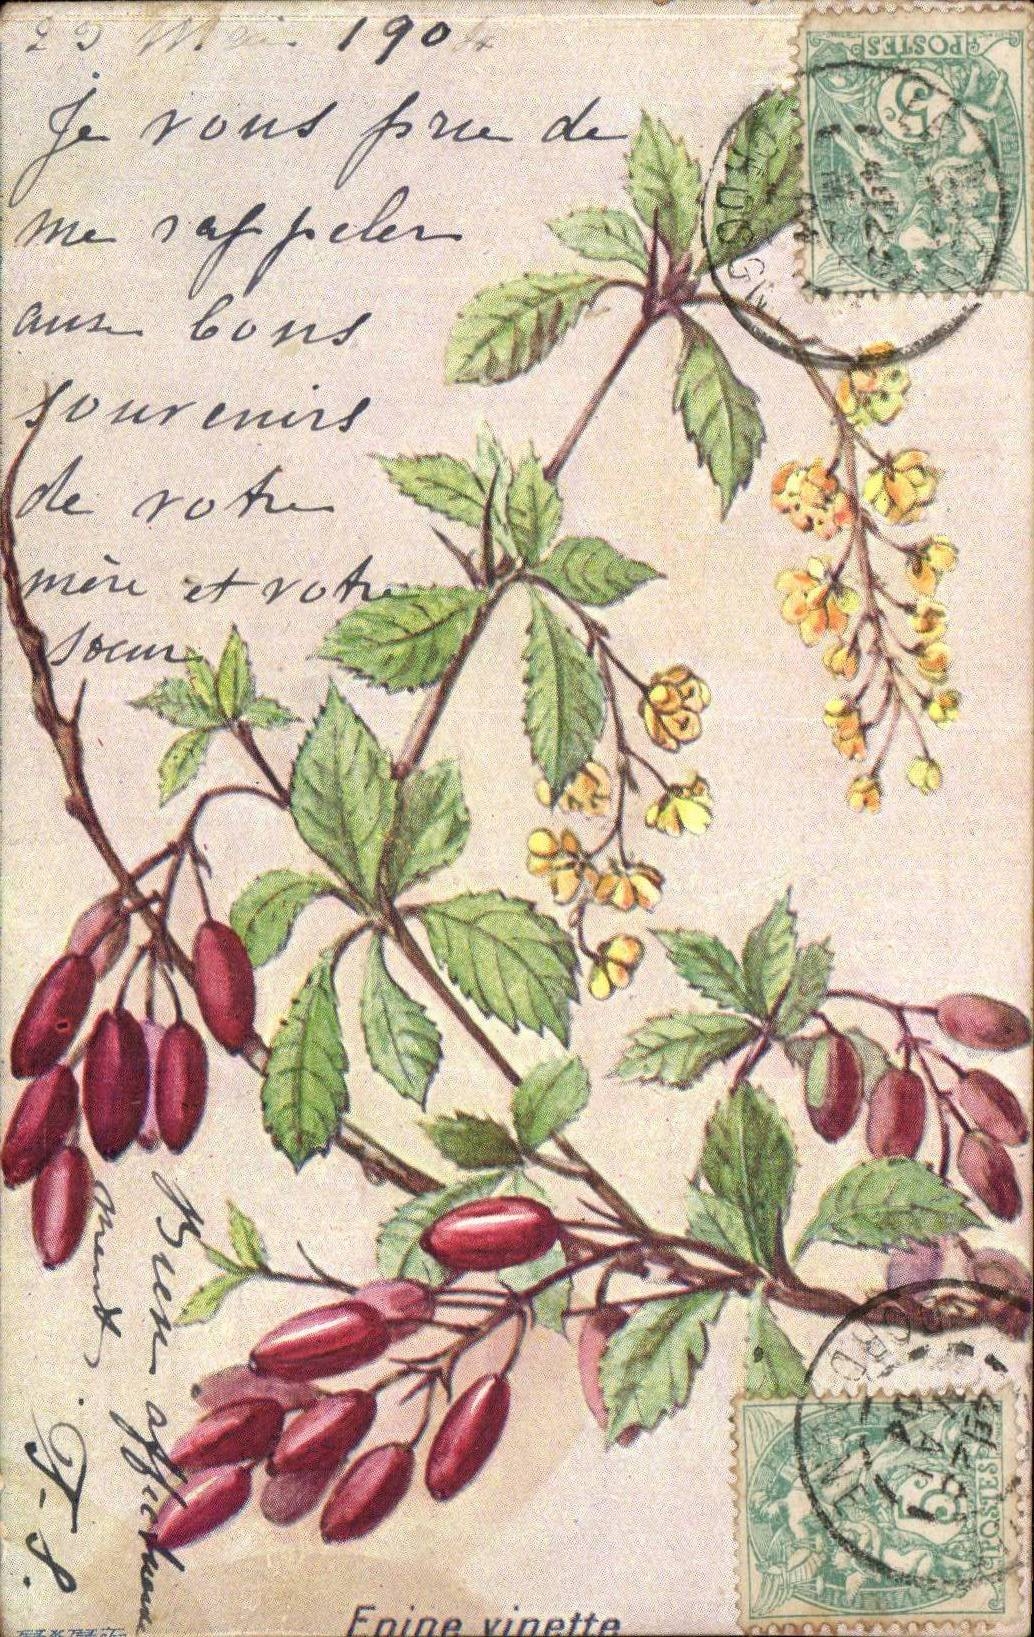 29 Mai 1904
Je vous prie de
me rappeler
aux bons
souvenirs
de votre
mère et votre
soeur
Bien affectueuse
ment
J. S.
POSTES
5
5
POSTES
Epine vinette